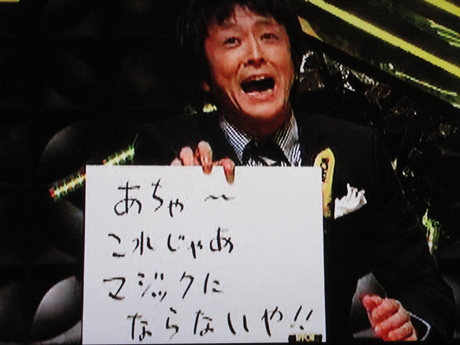 あちゃ〜
これじゃあ
マジックに
ならないや!!
IPPON